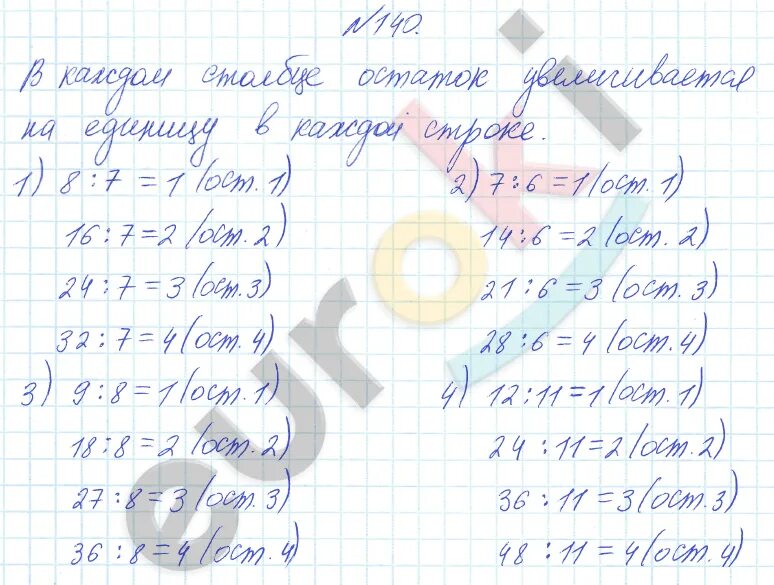 №140.
В каждом столбце остаток увеличивается
на единицу в каждой строке.
1) 8 : 7 = 1 (ост. 1)
16 : 7 = 2 (ост. 2)
24 : 7 = 3 (ост. 3)
32 : 7 = 4 (ост. 4)
2) 7 : 6 = 1 (ост. 1)
14 : 6 = 2 (ост. 2)
21 : 6 = 3 (ост. 3)
28 : 6 = 4 (ост. 4)
3) 9 : 8 = 1 (ост. 1)
18 : 8 = 2 (ост. 2)
27 : 8 = 3 (ост. 3)
36 : 8 = 4 (ост. 4)
4) 12 : 11 = 1 (ост. 1)
24 : 11 = 2 (ост. 2)
36 : 11 = 3 (ост. 3)
48 : 11 = 4 (ост. 4)
euroki